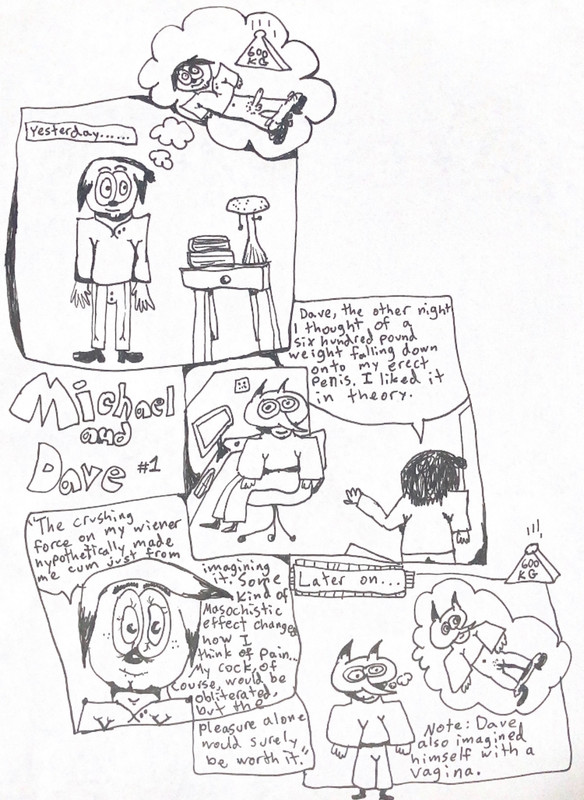 600
KG
Yesterday......
Dave, the other night
I thought of a
six hundred pound
weight falling down
onto my erect
penis. I liked it
in theory.
Michael
and
Dave #1
"The crushing
force on my wiener
hypothetically made
me cum just from
imagining
it. Some
kind of
Masochistic
effect changed
how I
think of pain...
My cock, of
course, would be
obliterated,
but the
pleasure alone
would surely
be worth it."
Later on...
600
KG
Note: Dave
also imagined
himself with a
vagina.